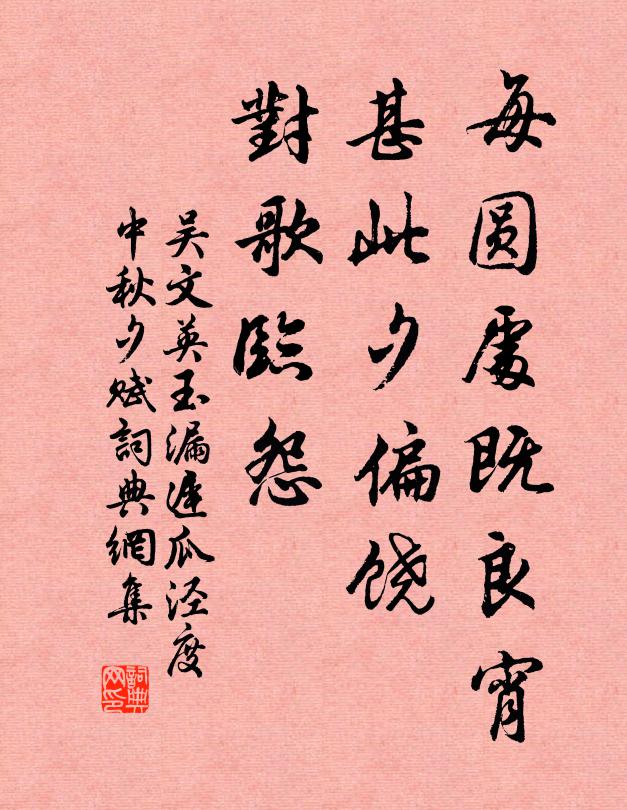 每圆處既良宵
甚此夕偏饶
對歌臨怨
吴文英玉漏遲瓜泾度
中秋夕赋詞典網集
詞典网印